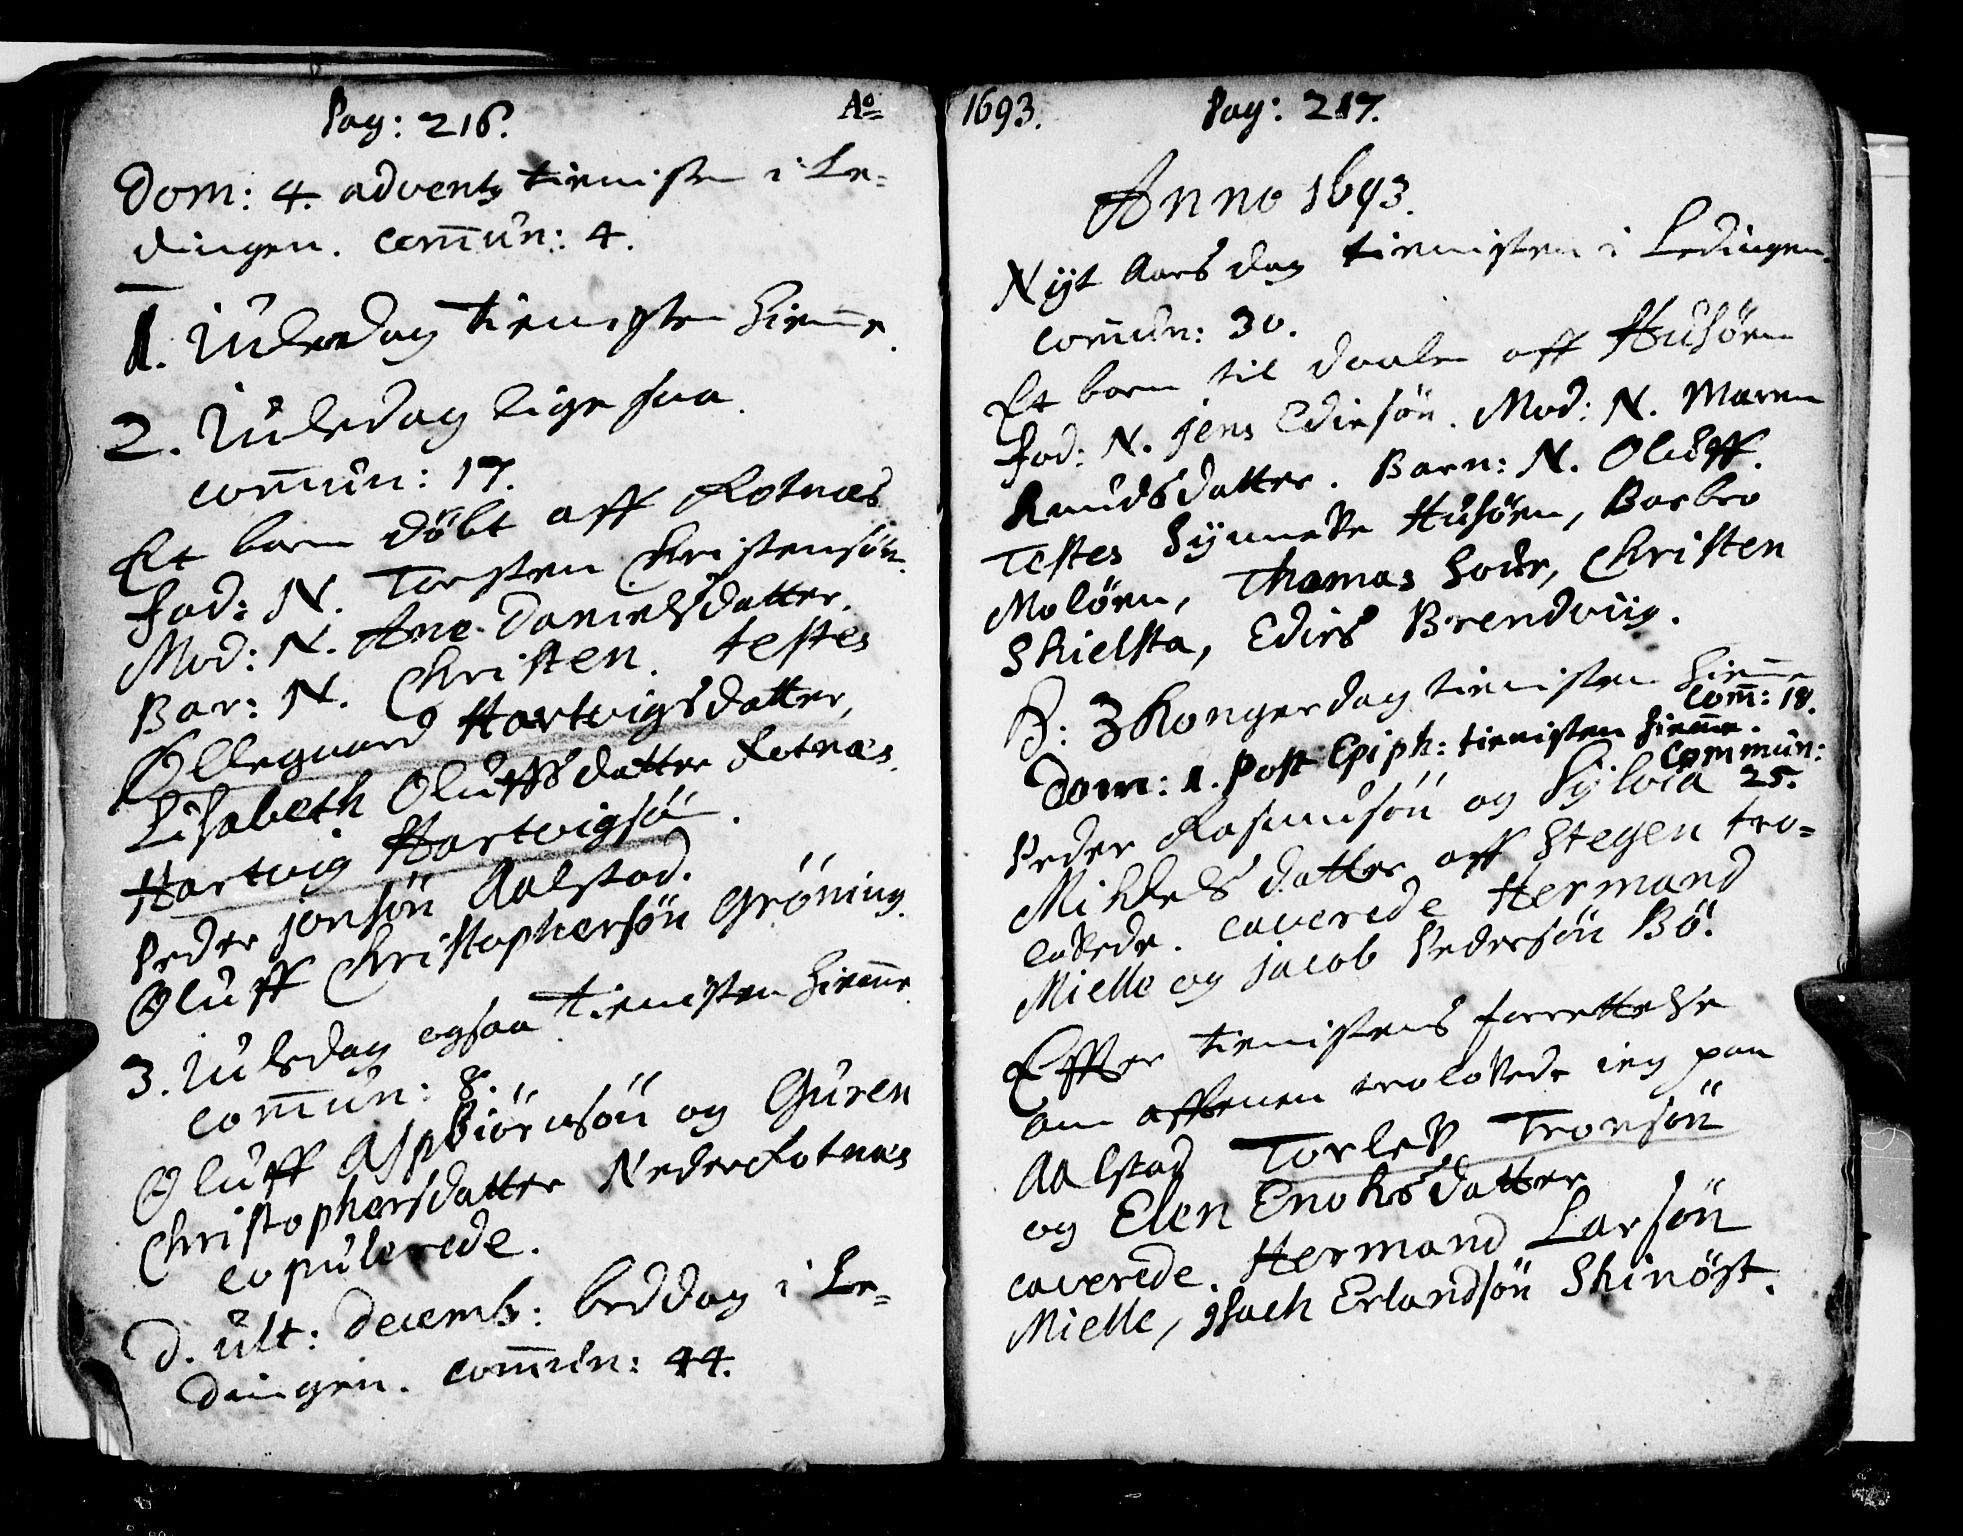 Pag: 216. Ao
Dom: 4. advents tienisten i Le=
dingen. com̅un: 4.
1. Juledag tienisten hiem̅e.
2. Juledag lige saa.
com̅un: 17.
Et barn döbt aff Rotnæs
fad: N. Torsten Christensön.
Mod: N. Ane Danielsdatter.
Bar: N. Christen. testes
Hartvigsdatter,
Lisabeth Oluffsdatter Rotnæs.
Hartvig Hartvigsön.
Peder jonsön Aalstad.
Oluff Christophersön Gröning.
3. Juledag ogsaa tienisten hiem̅e.
com̅un: 8.
Oluff Aspbiörnsön og Guren
Christophersdatter Neder Rotnæs
copulerede.
D. ult: decemb: beddag i Le=
dingen. com̅un: 44.
1693. Pag: 217.
Anno 1693.
Nyt Aars dag tienisten i Ledingen.
com̅un: 30.
Et barn til daaben aff Husöen
fad: N. jens Edissön. Mod: N. Maren
Knudsdatter. Barn: N. Oluff.
Testes Synneve Husöen, Barbro
Molöen, Thomas Christen
Skielsta, Edis Brendviig.
D: 3 Kongersdag tienisten hiem̅e
com̅: 18.
Dom: 1. Post Epiph: tienisten hiem̅e.
Commun:
25.
Peder Rasmusön og Sylvia
Mikkelsdatter aff Stegen tro=
lovede. caverede Hermand
Mielle og jacob Pedersön Bö.
Effter tienistens forrettelse
om afftenen trolovede ieg paa
Aalstad Torlev Tronsön
og Elen Enoksdatter
caverede. Hermand Larsön
Mielle, jsach Erlandsön Skinöst.